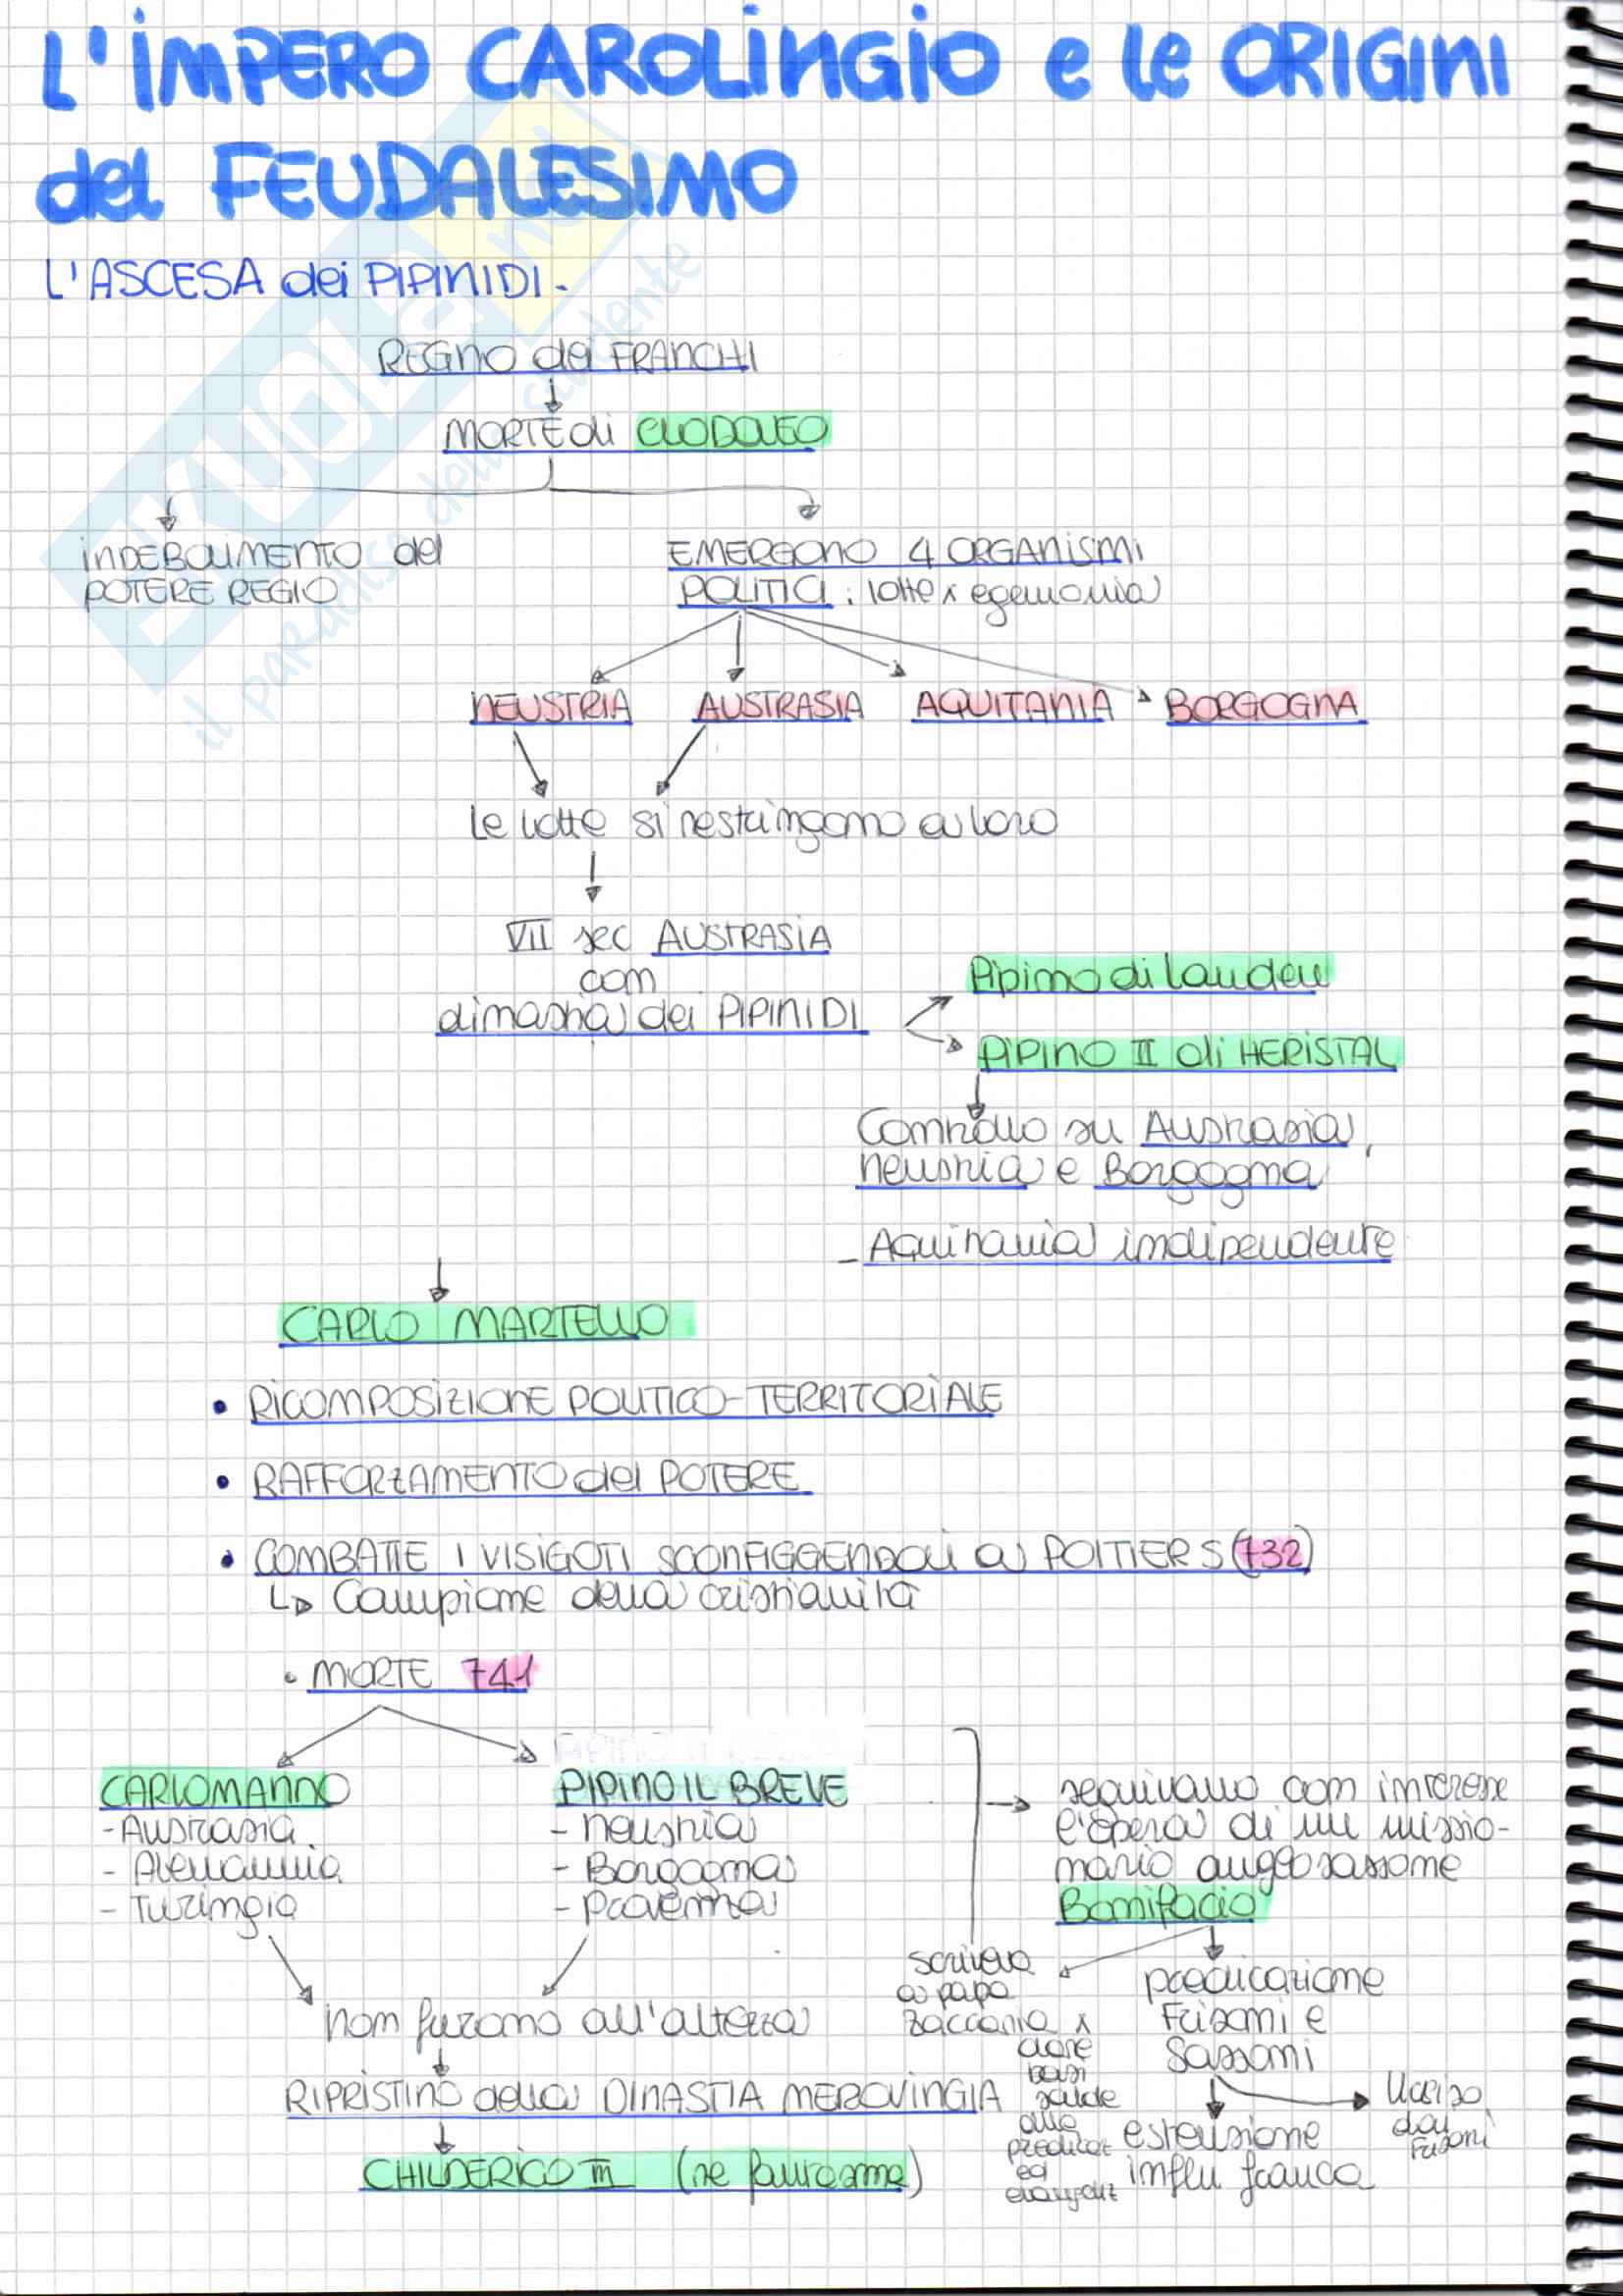 L'IMPERO CAROLINGIO e le ORIGINI
del FEUDALESIMO
L'ASCESA dei PIPINIDI.
REGNO dei FRANCHI
MORTE di CLODOVEO
INDEBOLIMENTO del
POTERE REGIO
EMERGONO 4 ORGANISMI
POLITICI: lotte x egemonia
NEUSTRIA AUSTRASIA AQUITANIA BORGOGNA
Le lotte si restringono a loro
VII sec AUSTRASIA
con
dinastia dei PIPINIDI
Pipino di Landen
PIPINO II di HERISTAL
Controllo su Austrasia,
Neustria e Borgogna
- Aquitania indipendente
CARLO MARTELLO
• RICOMPOSIZIONE POLITICO-TERRITORIALE
• RAFFORZAMENTO del POTERE
• COMBATTE I VISIGOTI SCONFIGGENDOLI a POITIERS (732)
↳ Campione della cristianità
• MORTE 741
CARLOMANNO
- Austrasia
- Alemannia
- Turingia
PIPINO IL BREVE
- Neustria
- Borgogna
- Provenza
→ seguivano con interesse
l'opera di un missio-
nario anglosassone
Bonifacio
scriveva
a papa
Zaccaria x
dare
basi
salde
alla
predicaz
ed
evangeliz
predicazione
Frisoni e
Sassoni
estensione
influ franca
Ucciso
dai
Frisoni
non furono all'altezza
RIPRISTINO della DINASTIA MEROVINGIA
CHILDERICO III (re fantasma)
SKUOLA.net
il paradiso dello studente